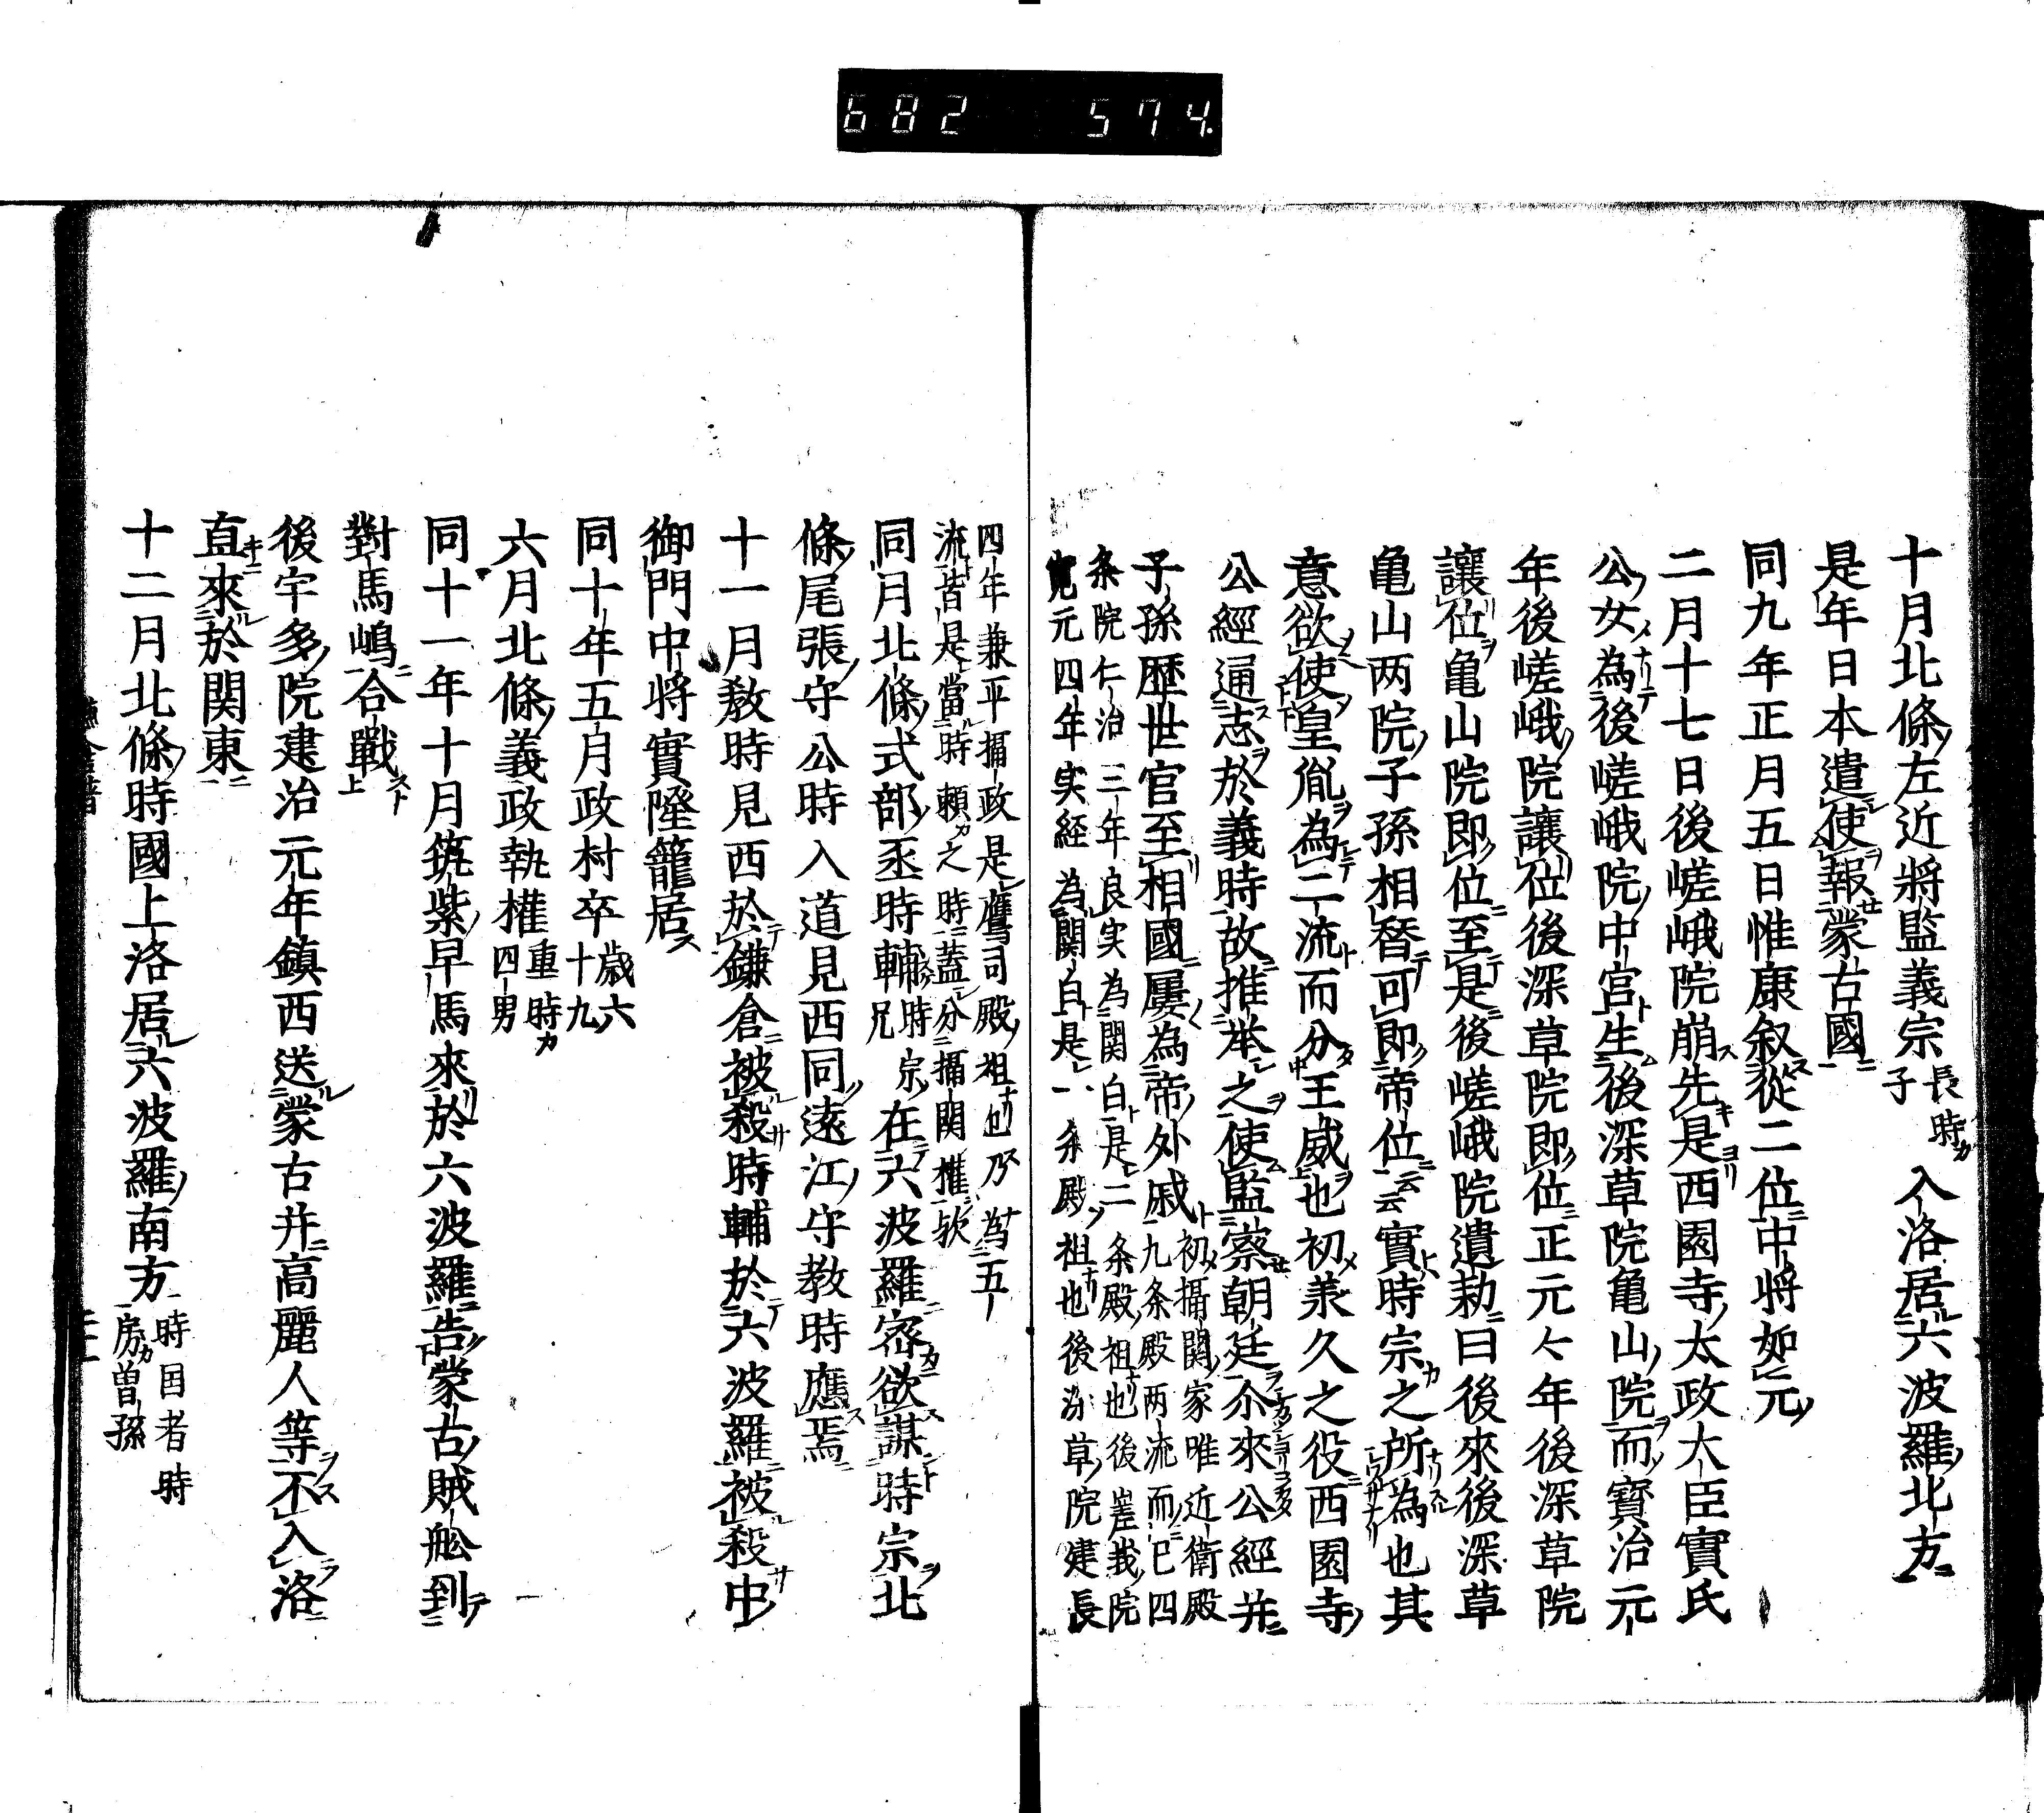 682 574
十月北條左近將監義宗長時カ子入洛居六波羅北方
是年日本遣使報蒙古國
同九年正月五日惟康叙從二位中将如元
二月十七日後嵯峨院崩先是西園寺太政大臣實氏
公女為後嵯峨院中宮生後深草院亀山院而寳治元
年後嵯峨院讓位後深草院即位正元々年後深草院
讓位亀山院即位至是後嵯峨院遺勅曰後來後深草
亀山两院子孫相替可即帝位云云實時宗之所為也其
意欲使皇胤為二流而分王威也初承久之役西園寺
公經通志於義時故推举之使監察朝廷尒來公經并
子孫歴世官至相國屢為帝外戚
初攝関家唯近衛殿
九条殿两流而已四
条院仁治三年良实為関白是二条殿祖也後嵳峩院
寛元四年実経為関白是一条殿祖也後深草院建長
四年兼平攝政是鷹司殿祖也乃為五
流皆是當時頼之時蓋分攝関権欤
同月北條式部丞時輔時宗兄在六波羅密欲謀時宗北
條尾張守公時入道見西同遠江守教時應焉
十一月敎時見西於鎌倉被殺時輔於六波羅被殺中
御門中将實隆籠居
同十年五月政村卒歳六十九
六月北條義政執権重時カ四男
同十一年十月筑紫早馬來於六波羅告蒙古賊舩到
對馬嶋合戰
後宇多院建治元年鎮西送蒙古并高麗人等不入洛
直來於関東
十二月北條時國上洛居六波羅南方時国者時房カ曽孫